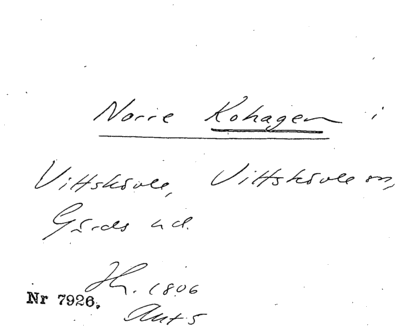 Norre Kohagen i
Vittskövle, Vittskövle sn,
Gärds hd.
Jh. 1806
Nr 7926.
Akt 5